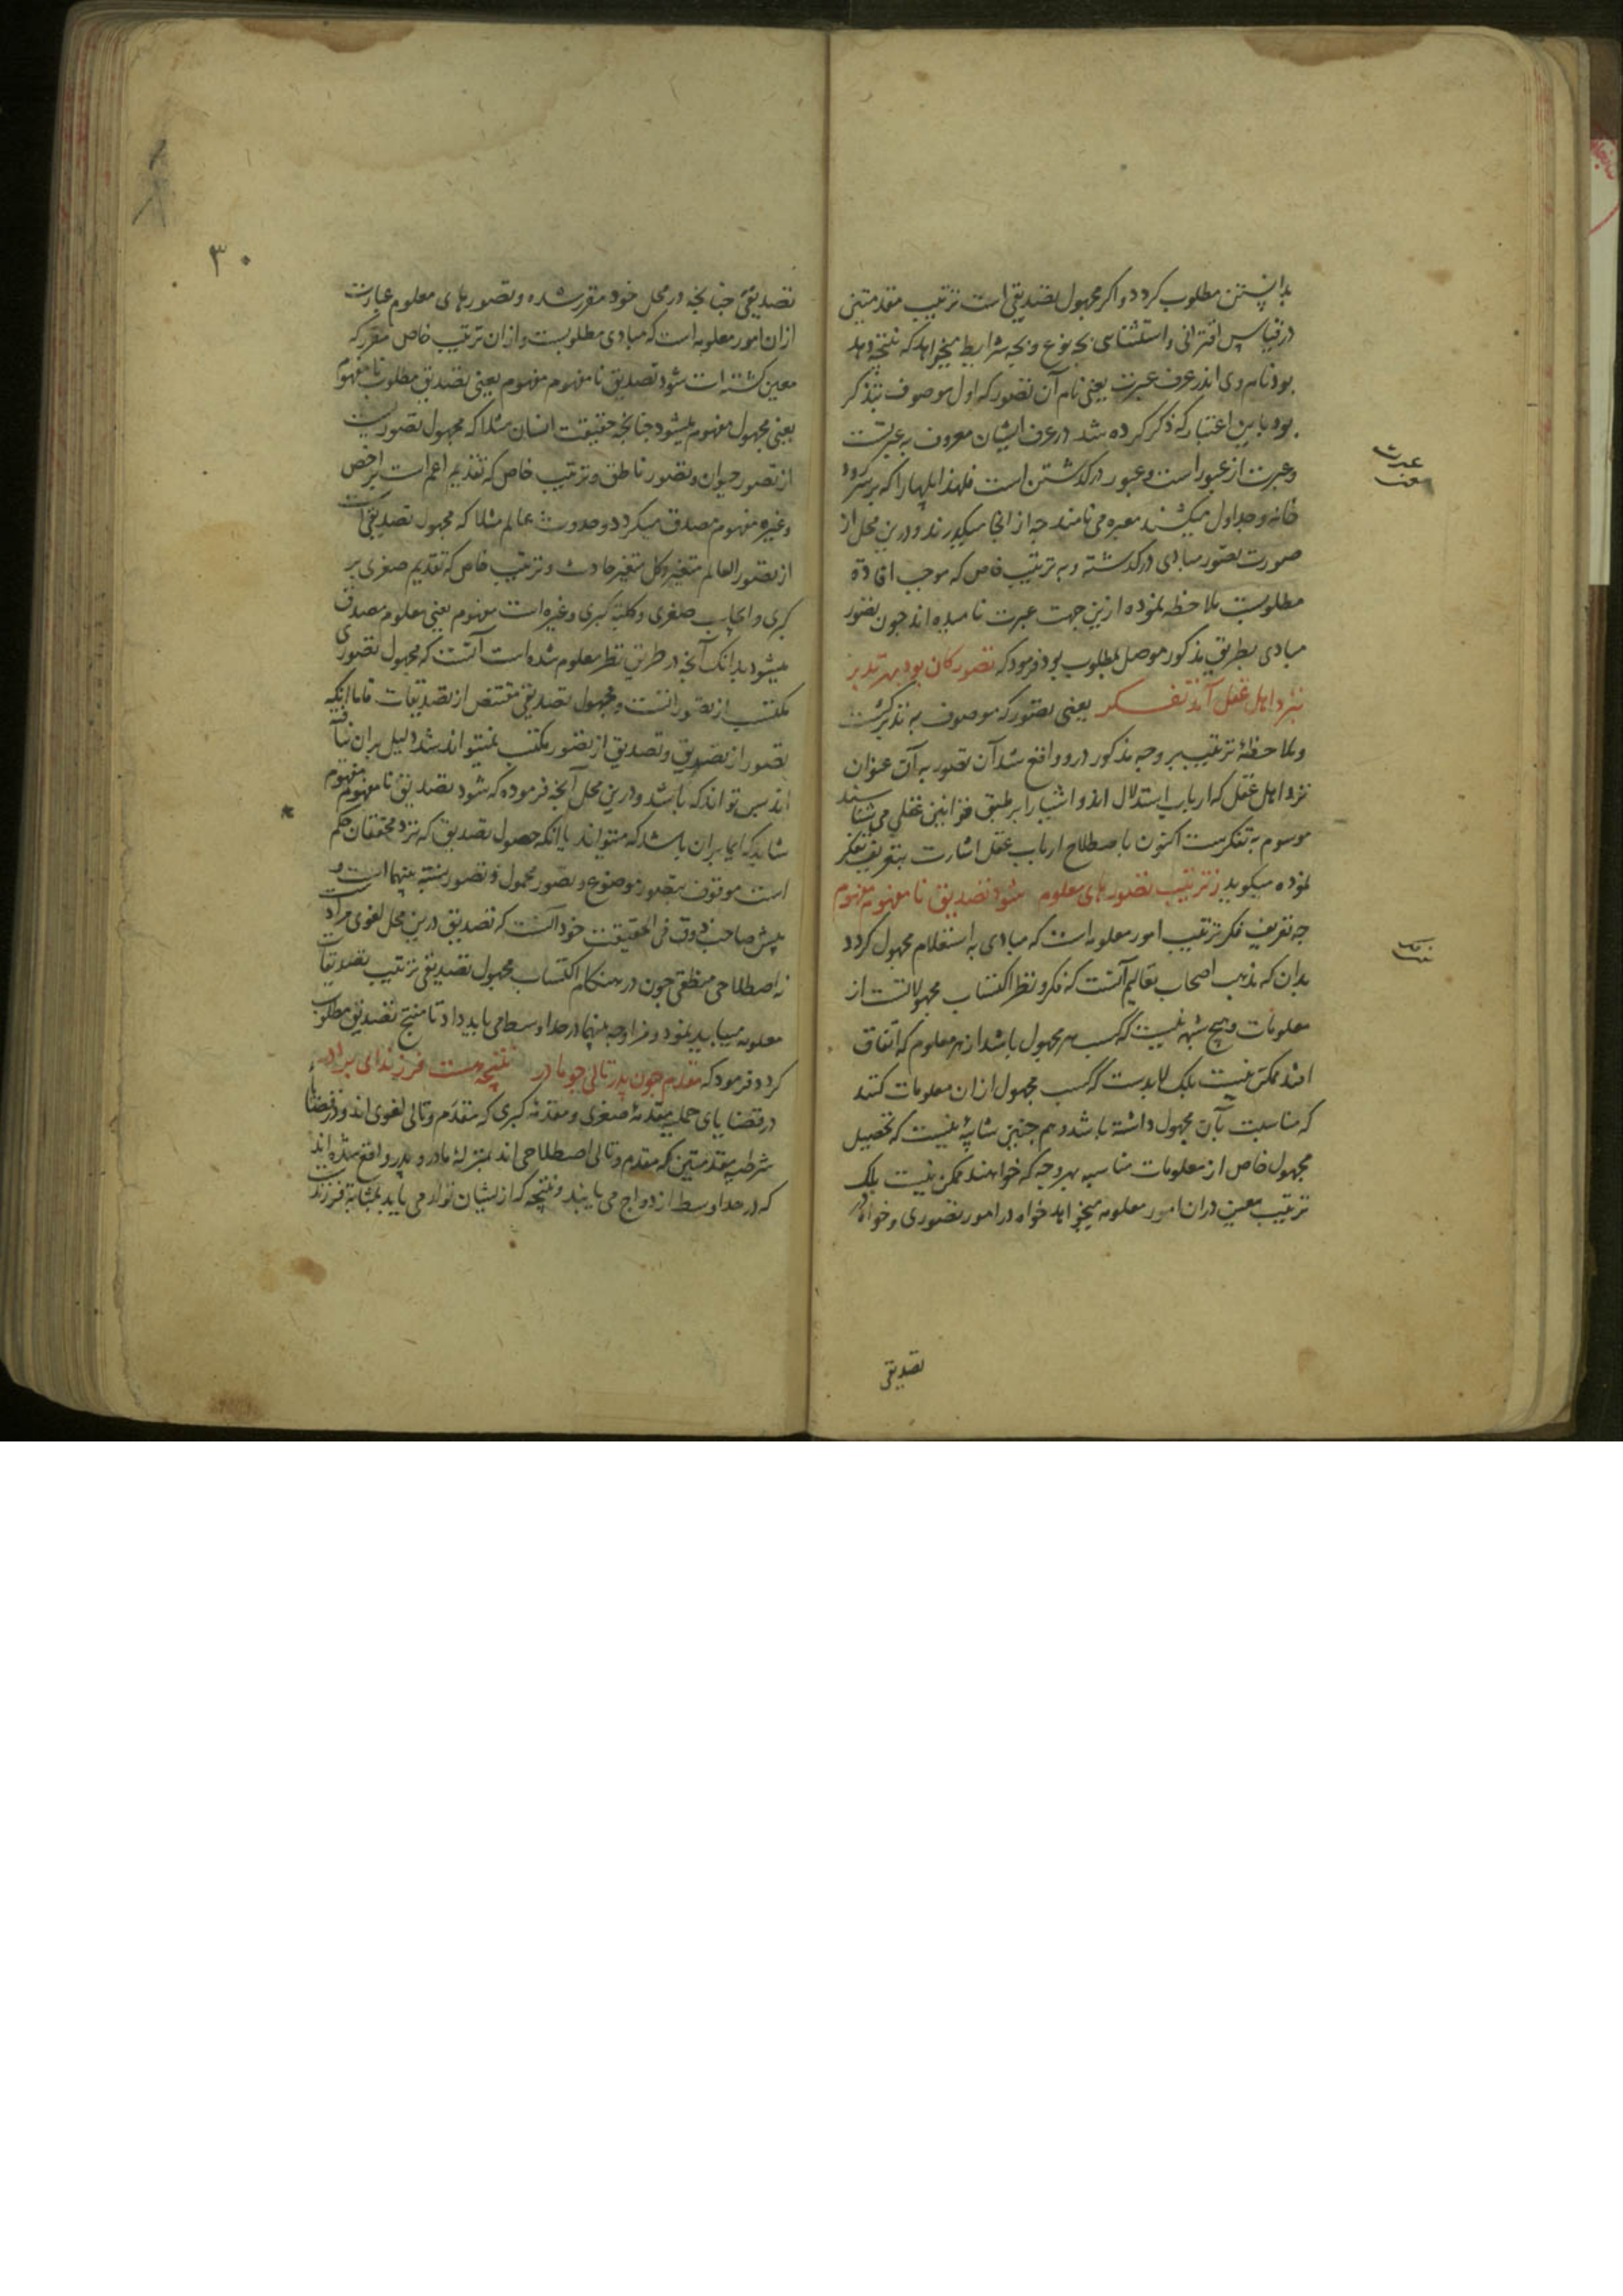 بدانستن مطلوب کردد و اکر مجهول تصدیقی است ترتیب مقدمتین
در قیاس اقترانی و استثنای بچه نوع و بچه شرایط میخواهد که نتیجه دهد
بود نام وی اندر عرف عبرت یعنی نام آن تصور که اول موصوف بتذکر
بود باین اعتبار که ذکر کرده شد در عرف ایشان معروف به عبرتست
و عبرت از عبور است و عبور در کذشتن است فلهذا پلها را که بر سر رود
خانه و جداول میکشند معبره می نامند چه از انجا میکذرند و درین محل از
صورت تصور مبادی در کذشته و به ترتیب خاص که موجب افاده
مطلوبست ملاحظه نموده ازین جهت عبرت نامیده اند جون تصور
مبادی بطریق مذکور موصل بمطلوب بود فرمود که تصور کان بود بهر تدبر
بنزد اهل عقل آمد تفکر یعنی تصور که موصوف به تدبر کشت
و ملاحظهٔ ترتیب بر وجه مذکور درو واقع شد آن تصور به آن عنوان
نزد اهل عقل که ارباب استدلال اند و اشیا را بر طبق قوانین عقلی می شناسند
موسوم به تفکرست اکنون باصطلاح ارباب عقل اشارت بتعریف تفکر
نموده میکوید ز ترتیب تصورهای معلوم شود تصدیق نا مفهوم مفهوم
چه تعریف فکر ترتیب امور معلومه است که مبادی به استعلام مجهول کردد
بدان که مذهب اصحاب تعالیم آنست که فکر و نظر اکتساب مجهولاتست از
معلومات و هیچ شبهه نیست که کسب هر مجهول باشد از هر معلوم که اتفاق
افتد ممکن نیست بلک لابدست که کسب مجهول از ان معلومات کنند
که مناسبت بآن مجهول داشته باشد و هم چنین شایبهٔ نیست که تحصیل
مجهول خاص از معلومات مناسبه بهر وجه که خواهند ممکن نیست بلک
ترتیب معین در ان امور معلومه میخواهد خواه در امور تصوری و خواه در
تصدیقی
عبرت
۳۰
تصدیقی چنانچه در محل خود مقرر شده و تصورهای معلوم عبارت
از ان امور معلومه است که مبادی مطلوبست و از ان ترتیب خاص مقرر که
معین کشته است شود تصدیق نا مفهوم مفهوم یعنی تصدیق مطلوب نا مفهوم
یعنی مجهول مفهوم میشود چنانچه حقیقت انسان مثلا که مجهول تصوریست
از تصور حیوان و تصور ناطق و ترتیب خاص که تقدیم اعم است بر اخص
و غیره مفهوم مصدق میکردد و حدوث عالم مثلا که مجهول تصدیقی است
از تصور العالم متغیر و کل متغیر حادث و ترتیب خاص که تقدیم صغری بر
کبری و ایجاب صغری و کلیة کبری و غیره است مفهوم یعنی معلوم مصدق
میشود بدانک آنچه در طریق نظر معلوم شده است آنست که مجهول تصوری
مکتسب از تصوراتست و مجهول تصدیقی مقتنص از تصدیقات فاما انکه
تصور از تصدیق و تصدیق از تصور مکتسب نمیتواند شد دلیل بر ان نیافته
اند پس تواند که باشد و درین محل آنچه فرموده که شود تصدیق نا مفهوم مفهوم
شاید که ایما بر ان باشد که متواند یا انکه حصول تصدیق که نزد محققان حکم
است موقوف بتصور موضوع و تصور محمول و تصور نسبته بینهما است و
پیش صاحب ذوق فی الحقیقت خود آنست که تصدیق درین محل لغوی مرادست
نه اصطلاحی منطقی چون در هنکام اکتساب مجهول تصدیقی ترتیب تصدیقات
معلومه میباید نمود و مزاوجه بینهما در حد اوسط می باید داد تا منتج تصدیق مطلوب
کردد فرمود که مقدم چون پدر تالی چو مادر نتیجه هست فرزند ای برادر
در قضایای حملیه مقدمهٔ صغری و مقدمهٔ کبری که مقدم و تالی لغوی اند و در قضایاء
شرطیه مقدمتین که مقدم و تالی اصطلاحی اند بمنزلهٔ مادر و پدر واقع شده اند
که در حد اوسط ازدواج می یابند و نتیجه که از یشان تولد می یابد بمثابهٔ فرزندست